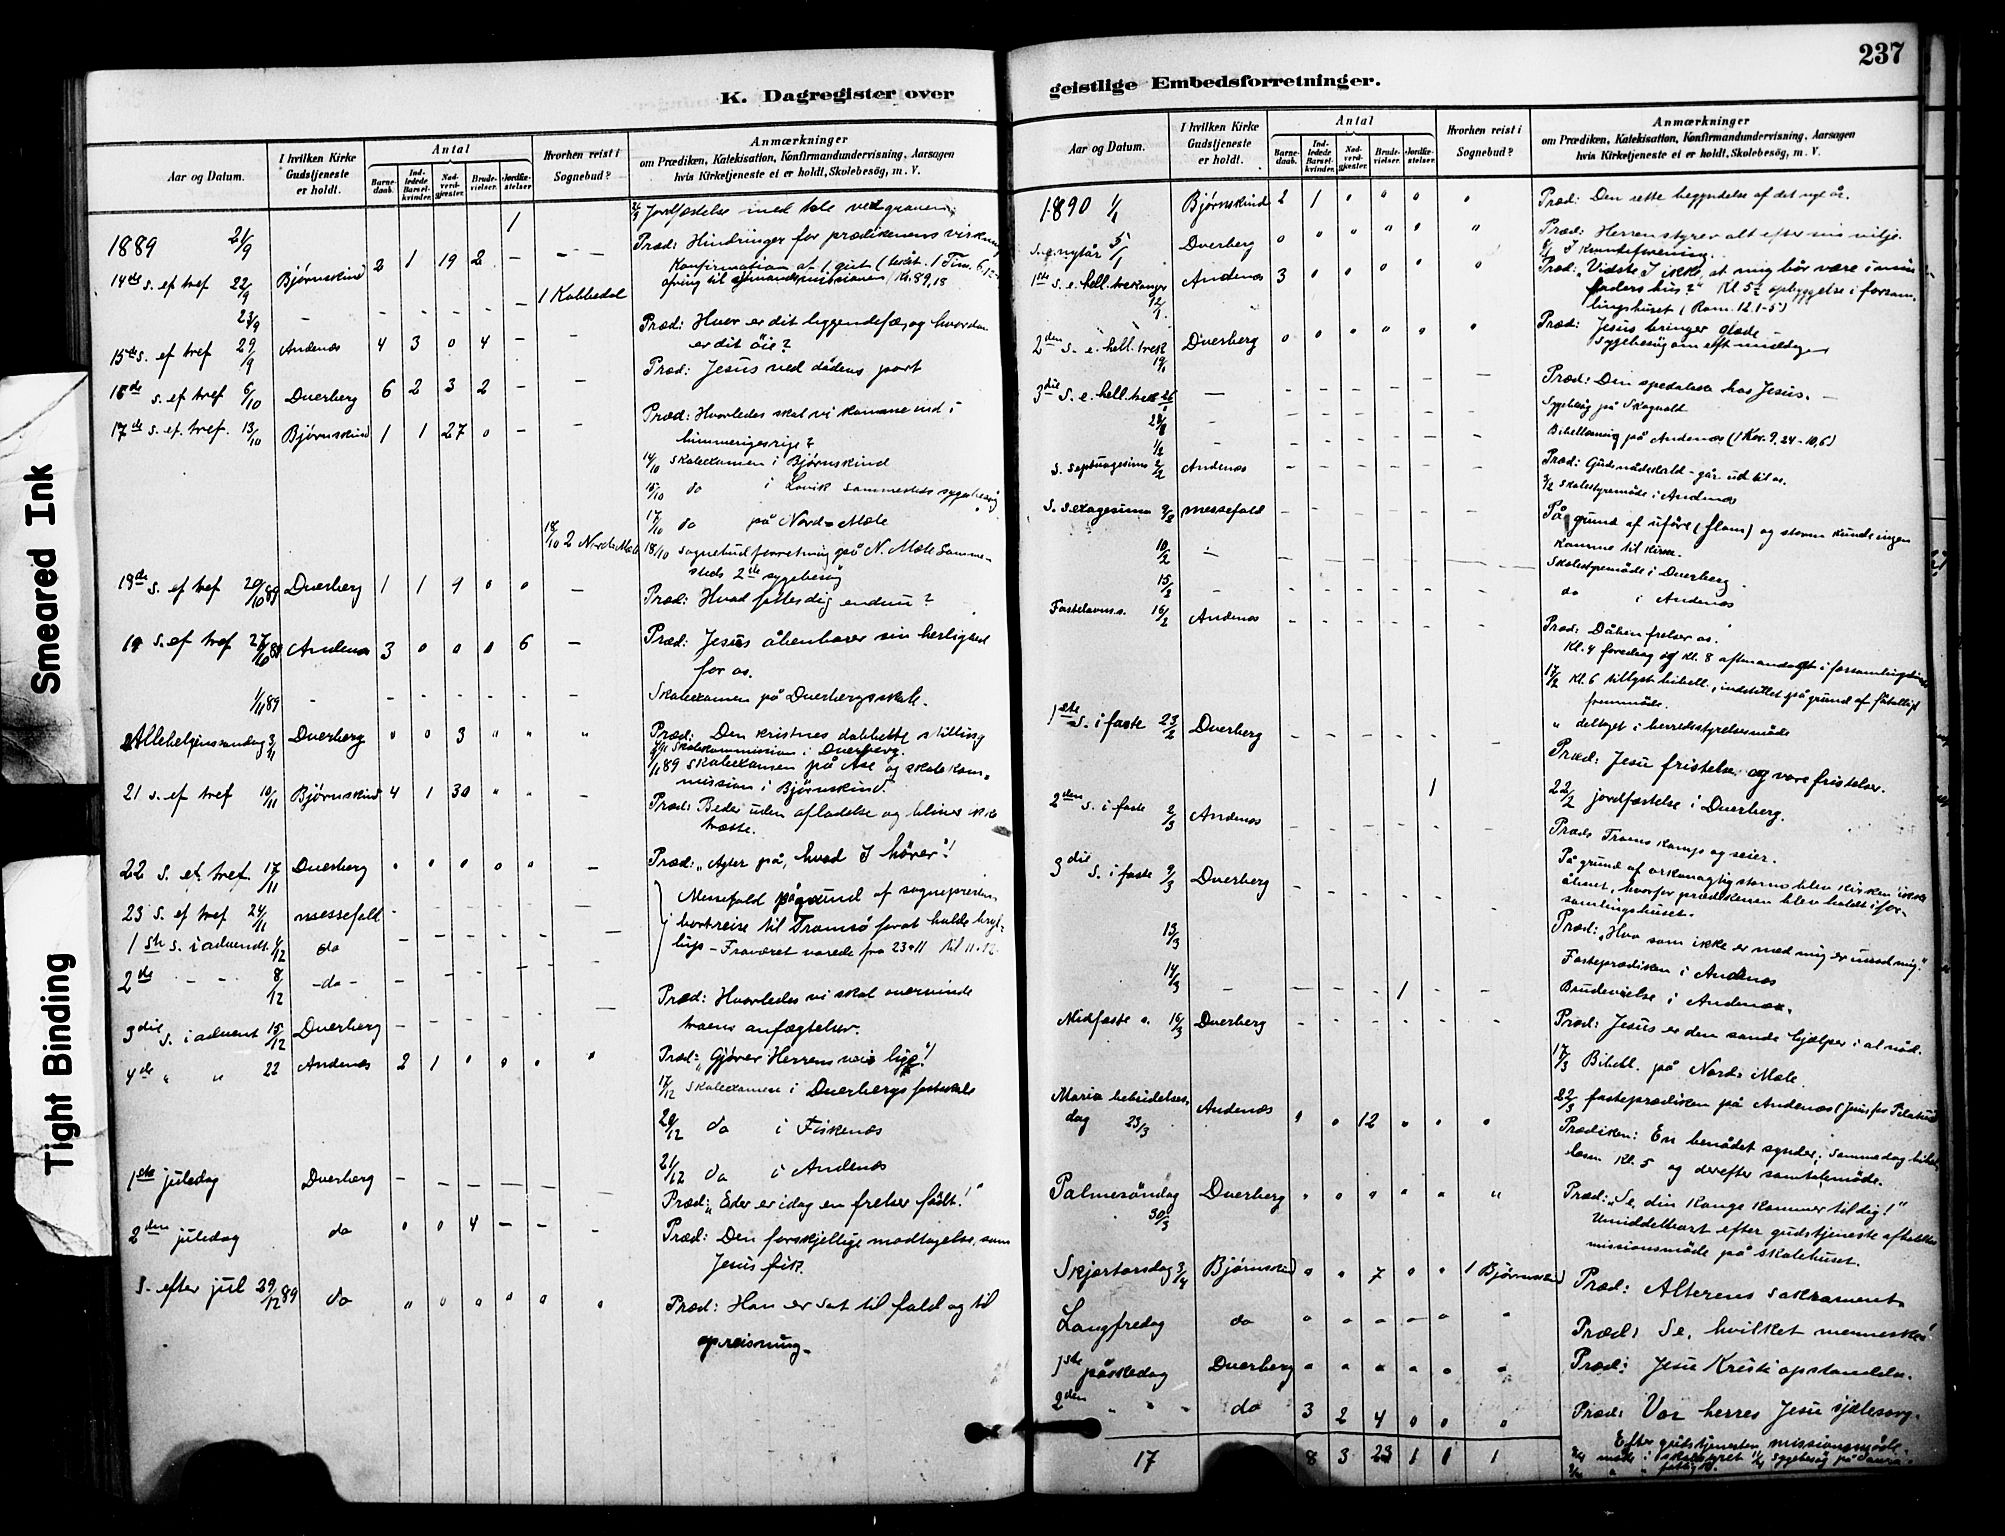 237
K. Dagregister over
geistlige Embedsforretninger.
Smeared Ink
Tight Binding
Aar og Datum.
I hvilken Kirke Gudstjeneste er holdt.
Antal
Barnedaab.
Indledede Barselkvinder.
Nadverdgjester.
Brudevielser.
Jordfæstelser
Hvorhen reist i Sognebud?
Anmærkninger
om Prædiken, Katekisation, Konfirmandundervisning, Aarsagen
hvis Kirketjeneste ei er holdt, Skolebesøg, m. V.
1889 21/9 1 Jordfæstelse med tale ved graven
14de s. ef tref 22/9 Bjørnskind 2 1 19 2 - - Præd: Hindringer for prædikenens virkning
Konfirmation af 1 gut
23/9 - - - - - - 1 Kobbedal
15de s. ef tref 29/9 Andenæs 4 3 0 4 - - Præd: Hvor er dit liggendefæ, og hvordan
er dit öie?
16de s. ef tref 6/10 Dverberg 6 2 3 2 - - Præd: Jesus ved dødens port
17de s. ef. tref. 13/10 Bjørnskind 1 1 27 0 - - Præd: Hvorledes skal vi komme ind i
himmeriges rige?
14/10 Skoleexamen i Bjørnskind
15/10 do i Lovik sammesteds sygebesøg
17/10 do på Nordre Mele
18/10 2 Nordre Mele 18/10 sognebudforretning på N. Mele Samme-
steds 2de sygebesøg
s. ef tref 20/10 89 Dverberg 1 1 0 0 - Præd: Hvad fattes dig endnu?
19 s. ef tref 27/10 89 Andenæs 3 0 0 0 6 - Præd: Jesus åbenbarer sin herlighed
for os.
1/11 89 - - - - - - - Skoleexamen på Dverbergs skole.
Allehelgenssøndag 3/11 Dverberg 0 0 3 " " " Præd: Den kristnes dobbelte stilling
Skolekommission i Dverberg.
Skoleexamen på Åse og skolekom-
mission i Bjørnskind
21 s. ef tref 10/11 Bjørnskind 4 1 30 " " - Præd: Beder uden afladelse og bliver ikke
trætte.
22 s. ef. tref. 17/11 Dverberg 0 0 0 0 0 - Præd: „Agter på, hvad I hører"!
23 s. ef tref 24/11 messefald - - - - - - Messefald på grund af sogneprestens
1ste s. i advendt 1/12 do - - - - - - bortreise til Tromsø forat holde bryl-
2de - - 8/12 -do- - - - - - - lup - Fraværet varede fra 23-11 til 11-12
3die s. i advent 15/12 Dverberg - - - - - - Præd: Hvorledes vi skal overvinde
troens anfægtelser.
4de " " 22 Andenæs 2 1 0 0 0 0 Præd: „Gjører Herrens veie lige"!
17/12 Skoleexamen i Dverbergs fastskole
20/12 do i Fiskenæs
21/12 do i Andenæs
1ste juledag Dverberg - - - - - - Præd: „Eder er idag en frelser født!"
2den juledag do 0 0 4 - - - Præd: Den forskjellige modtagelse, som
Jesus fik.
S. efter jul 29/12 89 do " 0 0 0 0 0 Præd: Han er sat til fald og til
opreisning.
Aar og Datum.
I hvilken Kirke Gudstjeneste er holdt.
Antal
Barnedaab.
Indledede Barselkvinder.
Nadverdgjester.
Brudevielser.
Jordfæstelser
Hvorhen reist i Sognebud?
Anmærkninger
om Prædiken, Katekisation, Konfirmandundervisning, Aarsagen
hvis Kirketjeneste ei er holdt, Skolebesøg, m. V.
1890 1/1 Bjørnskind 2 1 0 0 0 0 Præd: Den rette begyndelse af det nye år.
S. e. nytår 5/1 Dverberg 0 0 0 0 0 " Præd: Herren styrer alt efter sin vilje.
1ste s. e. hell. trekonger 12/1 Andenæs 3 0 0 0 0 0 Præd: Vidste I ikke, at mig bør være i min
faders hus?" Kl. 5½ opbyggelse i forsam-
lingshuset (Rom. 12.1-5)
2den s. e. hell. trek 19/1 Dverberg 0 0 0 0 0 0 Præd: Jesus bringer glæde
Sygebesøg om eftermiddagen
3die s. e. hell. trek 26/1 - - - - - - - Præd: Den spedalske hos Jesus. -
Sygebesøg på Skogvold
1/2 - Bibellæsning på Andenæs (1 Kor. 9, 24-10,6)
S. septuagesima 2/2 Andenæs - - - - - - Præd: Guds nådekald - går ud til os.
3/2 skolestyremøde i Andenæs
S. sexagesima 9/2 messefald På grund af uføre (flom) og storm kunde ingen
komme til kirke.
10/2 - Skolestyremøde i Dverberg
15/2 - do i Andenæs
Fastelavns s. 16/2 Andenæs - - - - - - Præd: Dåben frelser os.
Kl. 4 foredrag og kl. 8 aftenandagt i forsamlingshuset
17/2 Kl. 6 tillyst bibell., indstillet på grund af fåtalligt
fremmøde.
" deltaget i herredsstyrelsesmøde
1ste s. i faste 23/2 Dverberg - - - - - - Præd: Jesu fristelse og vore fristelser.
1 22/2 jordfæstelse i Dverberg.
2den s. i faste 2/3 Andenæs - - - - - - Præd: Troens kamp og seier.
3die s. i faste 9/3 Dverberg - - - - - - På grund af orkanagtig storm blev kirken ikke
åbnet, hvorfor prædikenen blev holdt i for-
samlingshuset.
Præd: „Hvo som ikke er med mig er imod mig."
13/3 Fasteprædiken i Andenæs
14/3 - - - - 1 - - Brudevielse i Andenæs.
Midfaste s. 16/3 Dverberg - - - - - - Præd: Jesus er den sande hjælper i al nød.
17/3 Bibell. på Nordre Mele.
22/3 fasteprædiken på Andenæs (Jesus for Pilatus)
Maria bebudelses-
dag 23/3 Andenæs 0 0 12 0 0 0 Prædiken: En benådet synder; samme dag bibel-
læsn Kl. 5 og derefter samtalemøde.
Palmesøndag 30/3 Dverberg 0 0 0 0 0 " Præd: „Se, din konge kommer til dig!"
Umiddelbart efter gudstjeneste afholdtes
missionsmøde på skolehuset.
Skjærtorsdag 3/4 Bjørnskind 0 0 7 0 0 1 Bjørnskind Præd: Alterens sakrament
Langfredag do 0 0 0 0 0 Præd: Se, hvilket menneske!
1ste påskedag Dverberg 0 0 0 0 0 0 Præd: Jesu Kristi opstandelse.
2den " " " do 3 2 4 0 0 0 Præd: Vor herres Jesu sjælesorg.
Efter gudstjenesten missionsmøde.
17 8 3 23 1 1 1